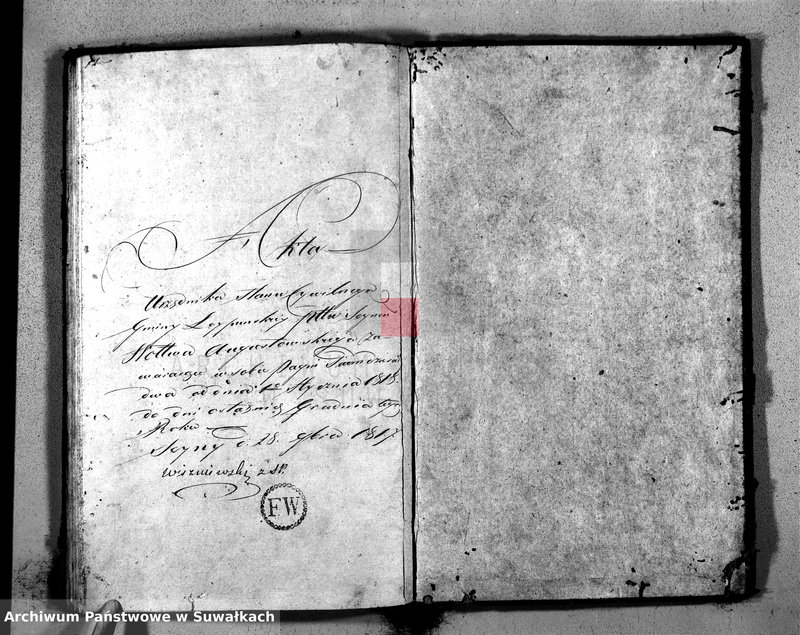 Akta
Urzędnika Stanu Cywilnego
Gminy Łoypunskiey Pttu Seynen
Wottwa Augustowskiego za
wieraiące w sobie Pagin
dwa od dnia 1go Stycznia 1818
do dni ostatniey Grudnia tegoż
Roku
Seyny d. 28. 9bra 1817
Wiszniewski z SP.
FW
Archiwum Państwowe w Suwałkach